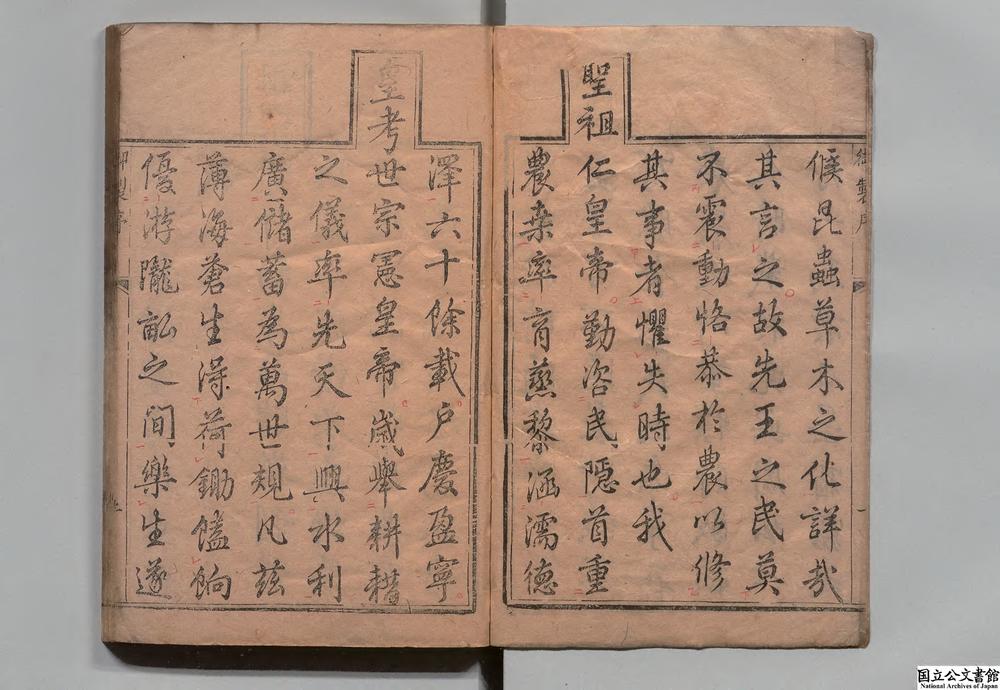 候昆蟲草木之化詳哉
其言之故先王之民莫
不震動恪恭於農以修
其事者懼失時也我
聖祖
仁皇帝勤咨民隱首重
農桑率育蒸黎涵濡德
澤六十餘載戶慶盈寧
皇考
世宗憲皇帝歲舉耕耤
之儀率先天下興水利
廣儲蓄為萬世規凡茲
薄海蒼生得荷鋤饁餉
優游隴畝之間樂生遂
御製序
国立公文書館
National Archives of Japan